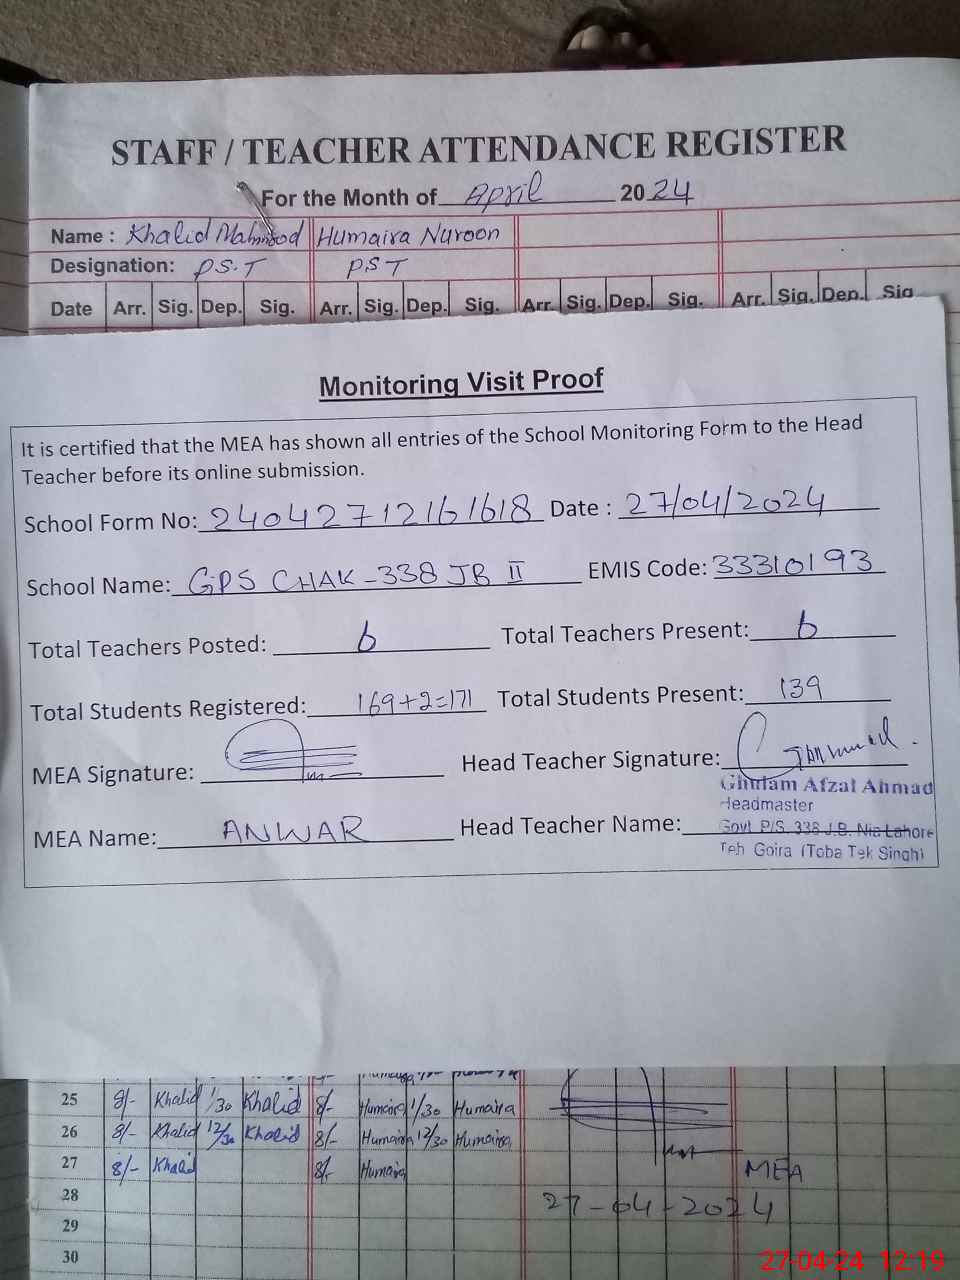 STAFF / TEACHER ATTENDANCE REGISTER
For the Month of April 2024
Name : Khalid Mahmood Humaira Nuroon
Designation: P.S.T P.S T
Date Arr. Sig. Dep. Sig. Arr. Sig. Dep. Sig. Arr. Sig. Dep. Sig. Arr. Sig. Dep. Sig
Monitoring Visit Proof
It is certified that the MEA has shown all entries of the School Monitoring Form to the Head
Teacher before its online submission.
School Form No: 24042712161618 Date : 27/04/2024
School Name: GPS CHAK-338 JB II EMIS Code: 33310193
Total Teachers Posted: 6 Total Teachers Present: 6
Total Students Registered: 169+2=171 Total Students Present: 139
MEA Signature: Head Teacher Signature:
Ghulam Afzal Ahmad
Headmaster
MEA Name: ANWAR Head Teacher Name:
Govt P/S. 338 J.B. Nia Lahore
Teh Gojra (Toba Tek Singh)
25 8/- Khalid 1/30 Khalid 8/- Humaira 1/30 Humaira
26 8/- Khalid 12/30 Khalid 8/- Humaira 12/30 Humaira
27 8/- Khalid 8/- Humaira
MEA
28 27-04-2024
29
30
27-04-24 12:19